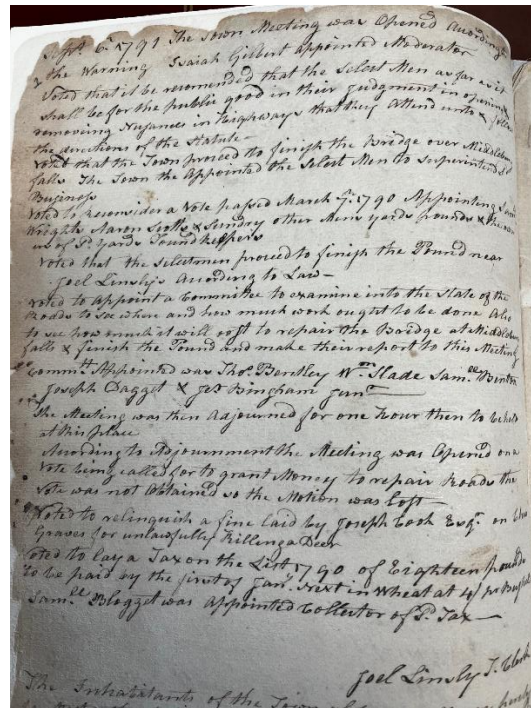 Sept. 6th 1791 The Town Meeting was Opened According
to the Warning Isaiah Gilbert appointed Moderator
Voted that it be recomended that the Select Men as far as it
shall be for the public good in their Judgment in opening &
removing Nusances in highways that they Attend unto & follow
the directions of the Statute
Voted that the Town proceed to finish the Bridge over Middlebury
falls The Town the Appointed the Select Men to Surperintend Sd
Business
Voted to Reconsider a Vote passed March 7th 1790 Appointing
Wrights Aaron Scotts & Sundry other Mens yards pounds & the own
ers of Sd yards Pound keepers
Voted that the Selectmen proceed to finish the Pound near
Joel Linsly's According to Law
Voted to appoint a Committee to examine into the State of the
Roads to See where and how much work ought to be done Also
to see how much it will cost to repair the Bridge at Middlebury
falls & finish the Pound and make their report to this Meeting
Committ Appointed was Thos. Bentley Wm Slade Samll Benton
Joseph Dagget & Jer Bingham Junr
The Meeting was then Adjourned for one hour then to be held
at this place
According to Adjournment the Meeting was Opened on a
Vote being called for to grant Money to repair Roads the
Vote was not Obtained so the Motion was Lost
Voted to relinquish a fine laid by Joseph Cook Esqr. on
Graves for unlawfully Killing a Deer
Voted to lay a Tax on the List 1790 of Eighteen pounds
to be paid by the first of Janr. Next in Wheat at 4/ pr Bushel
Samll Blogget was Appointed Collector of Sd. Tax
Joel Linsly T. Clerk
The Inhabitants of the Town of